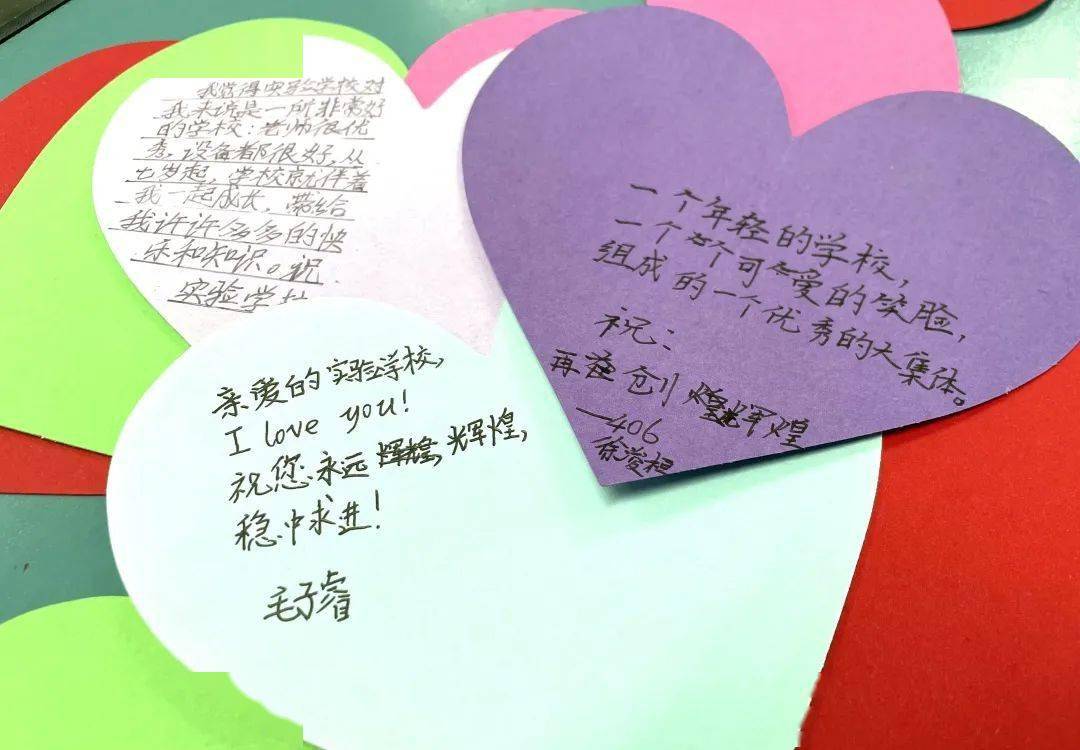 我觉得实验学校对
我来说是一所非常好
的学校：老师很优
秀，设备都很好，从
七岁起，学校就伴着
我一起成长，带给
我许许多多的快
乐和知识。祝
实验学
一个年轻的学校，
一个个可爱的笑脸，
组成的一个优秀的大集体。
祝：
再创辉煌
—406
徐浚桓
亲爱的实验学校，
I love you!
祝您永远辉煌，
稳中求进！
毛子睿